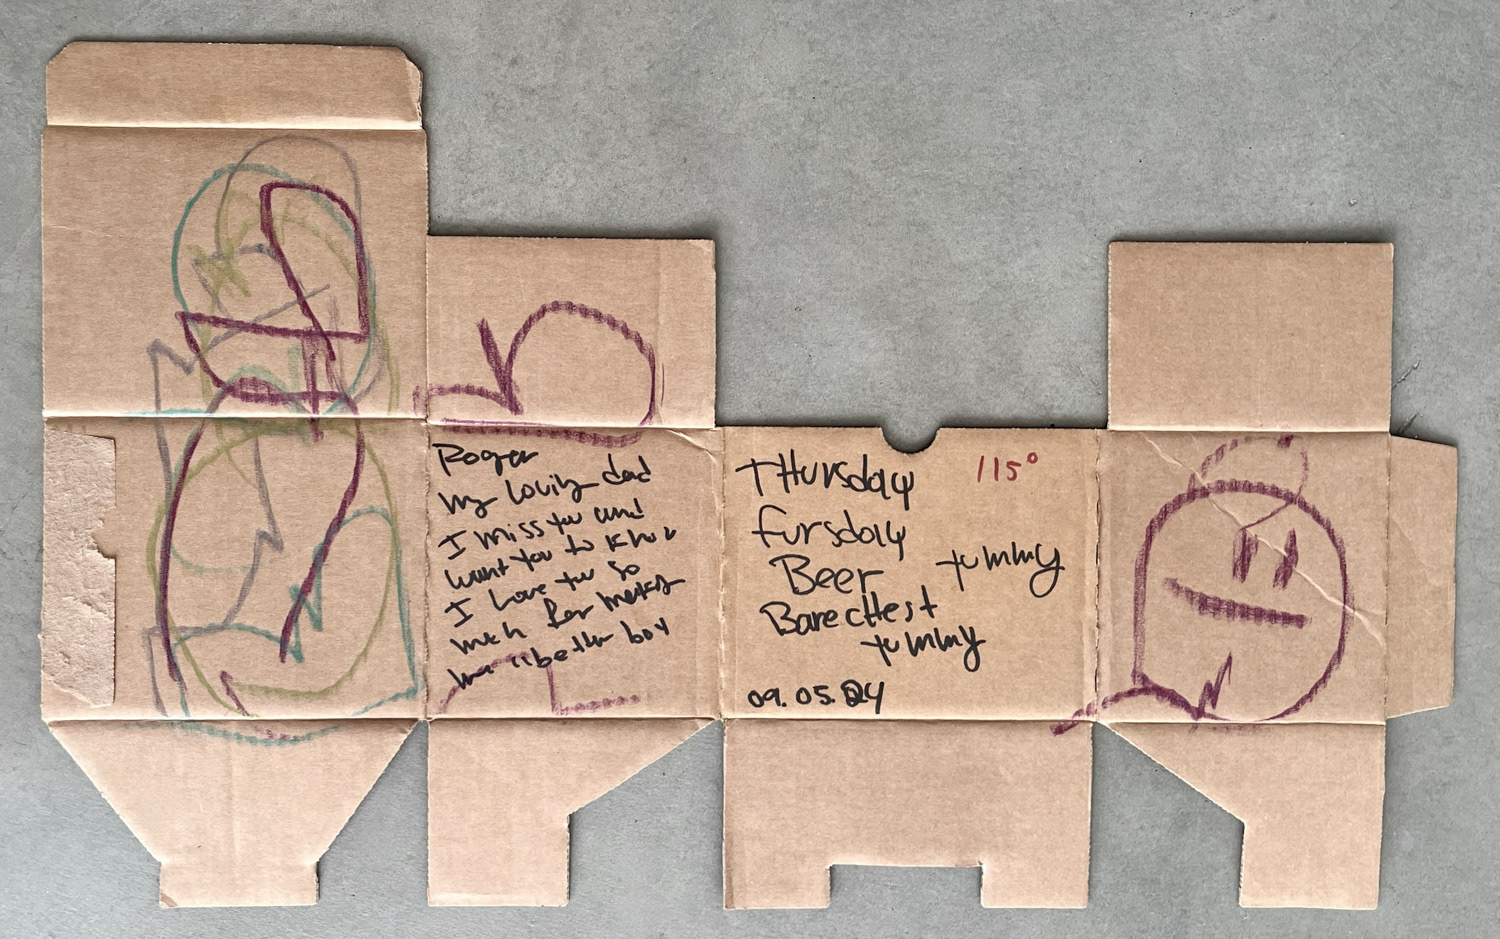 Roger
my lovily dad
I miss you and
want you to know
I Love you so
much for making
me a better boy
THursday 115°
fursday
Beer yummy
BarecHest
yummy
09.05.24